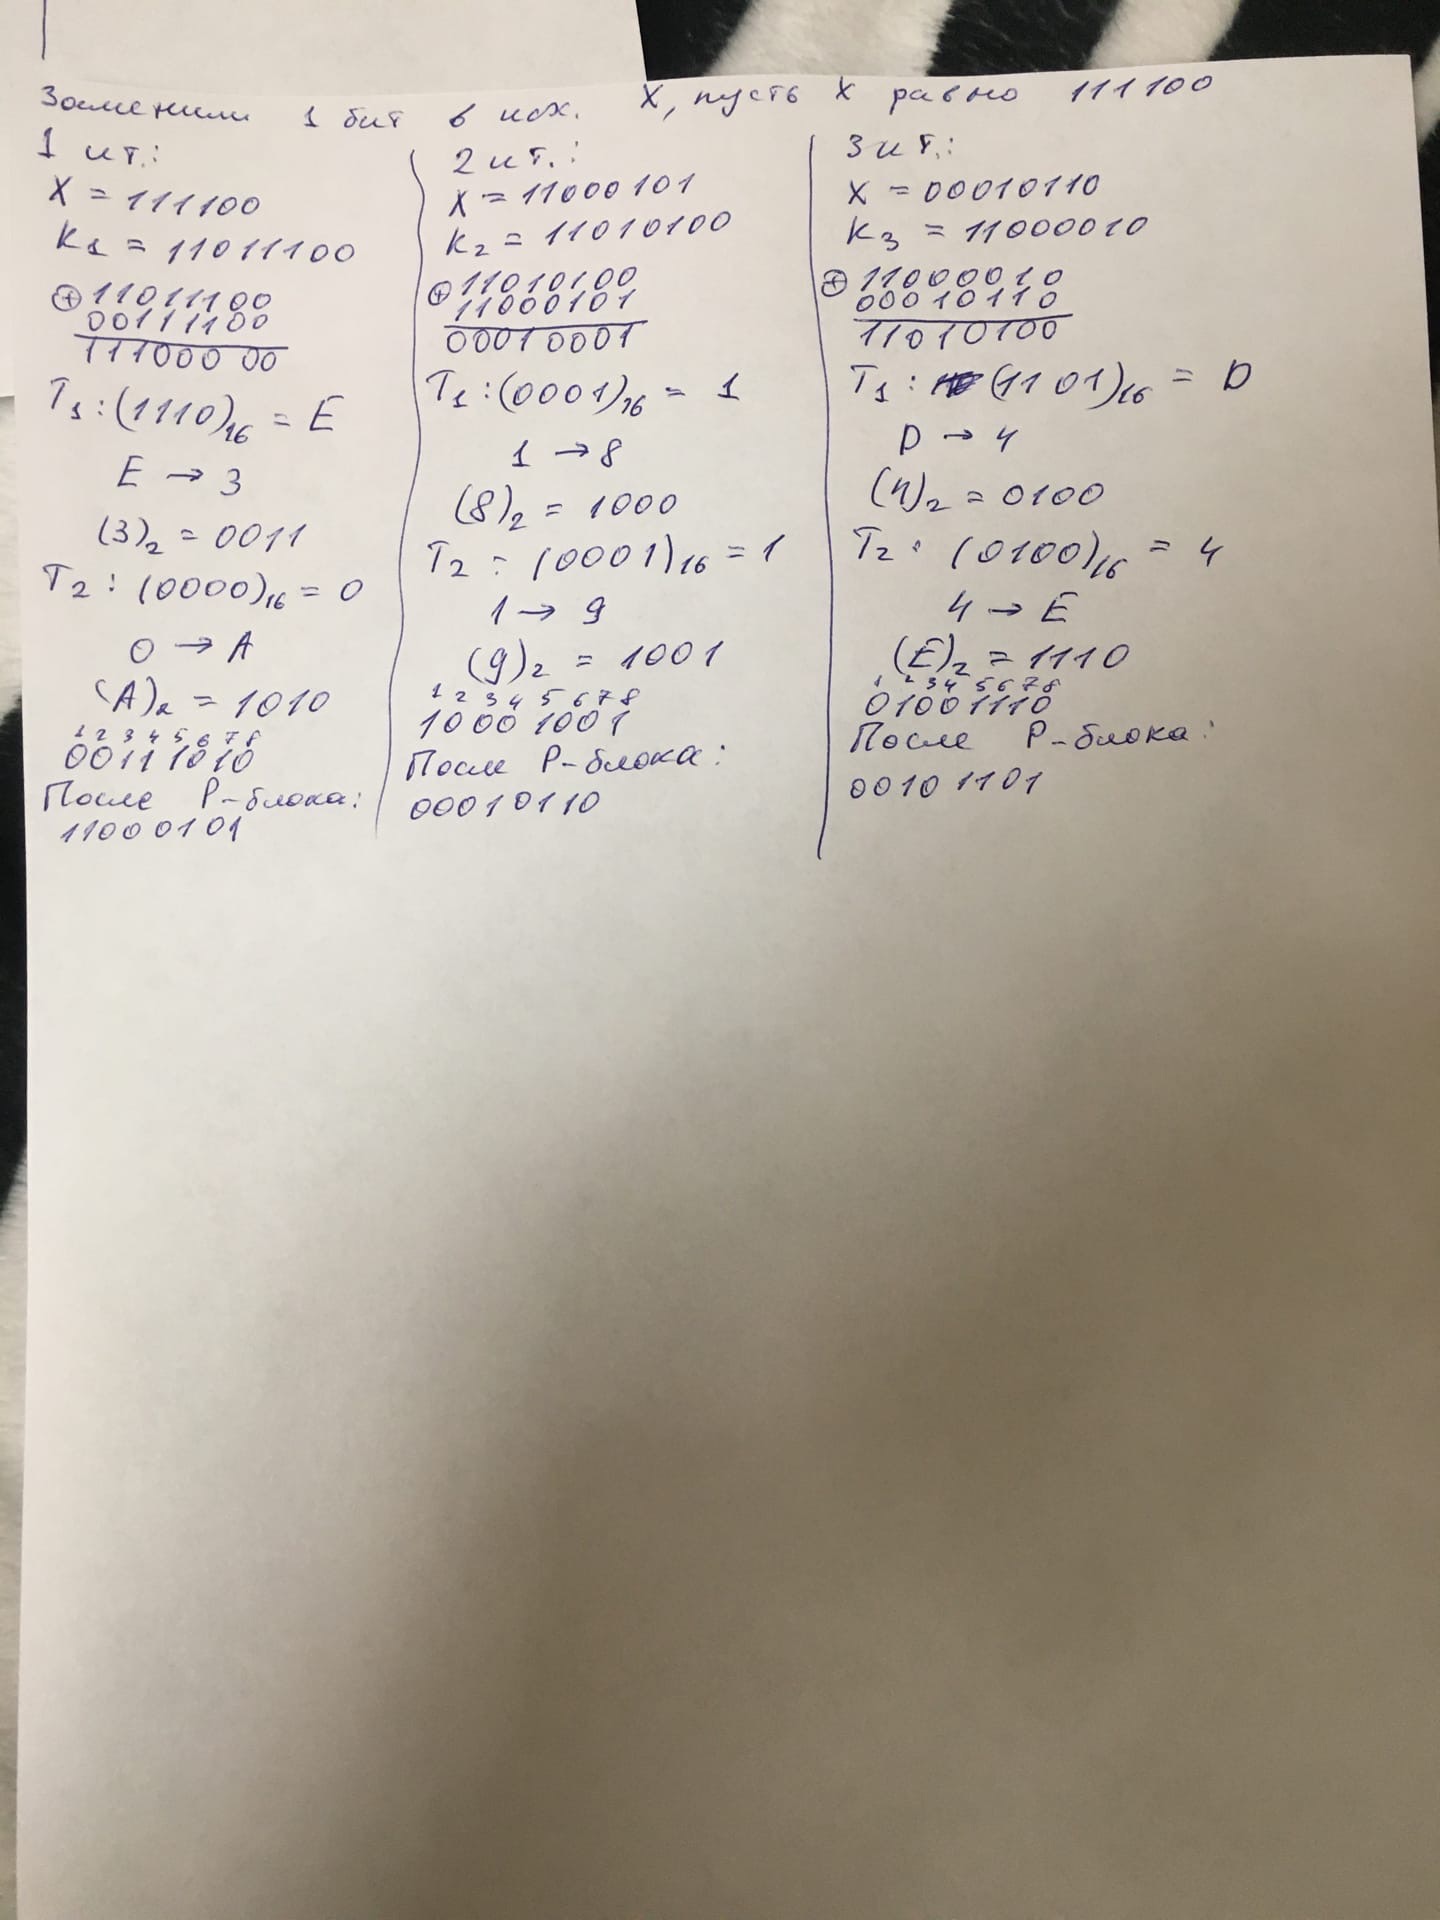 Заменим 1 бит в исх. X, пусть X равно 111100
1 ит.:
X = 111100
K1 = 11011100
⊕ 11011100
00111100
11100000
T1 : (1110)16 = E
E → 3
(3)2 = 0011
T2 : (0000)16 = 0
0 → A
(A)2 = 1010
1 2 3 4 5 6 7 8
00111010
После P-блока:
11000101
2 ит.:
X = 11000101
K2 = 11010100
⊕ 11010100
11000101
00010001
T1 : (0001)16 = 1
1 → 8
(8)2 = 1000
T2 : (0001)16 = 1
1 → 9
(9)2 = 1001
1 2 3 4 5 6 7 8
1000 1001
После P-блока:
00010110
3 ит.:
X = 00010110
K3 = 11000010
⊕ 11000010
00010110
11010100
T1 : (1101)16 = D
D → 4
(4)2 = 0100
T2 : (0100)16 = 4
4 → E
(E)2 = 1110
1 2 3 4 5 6 7 8
01001110
После P-блока:
0010 1101